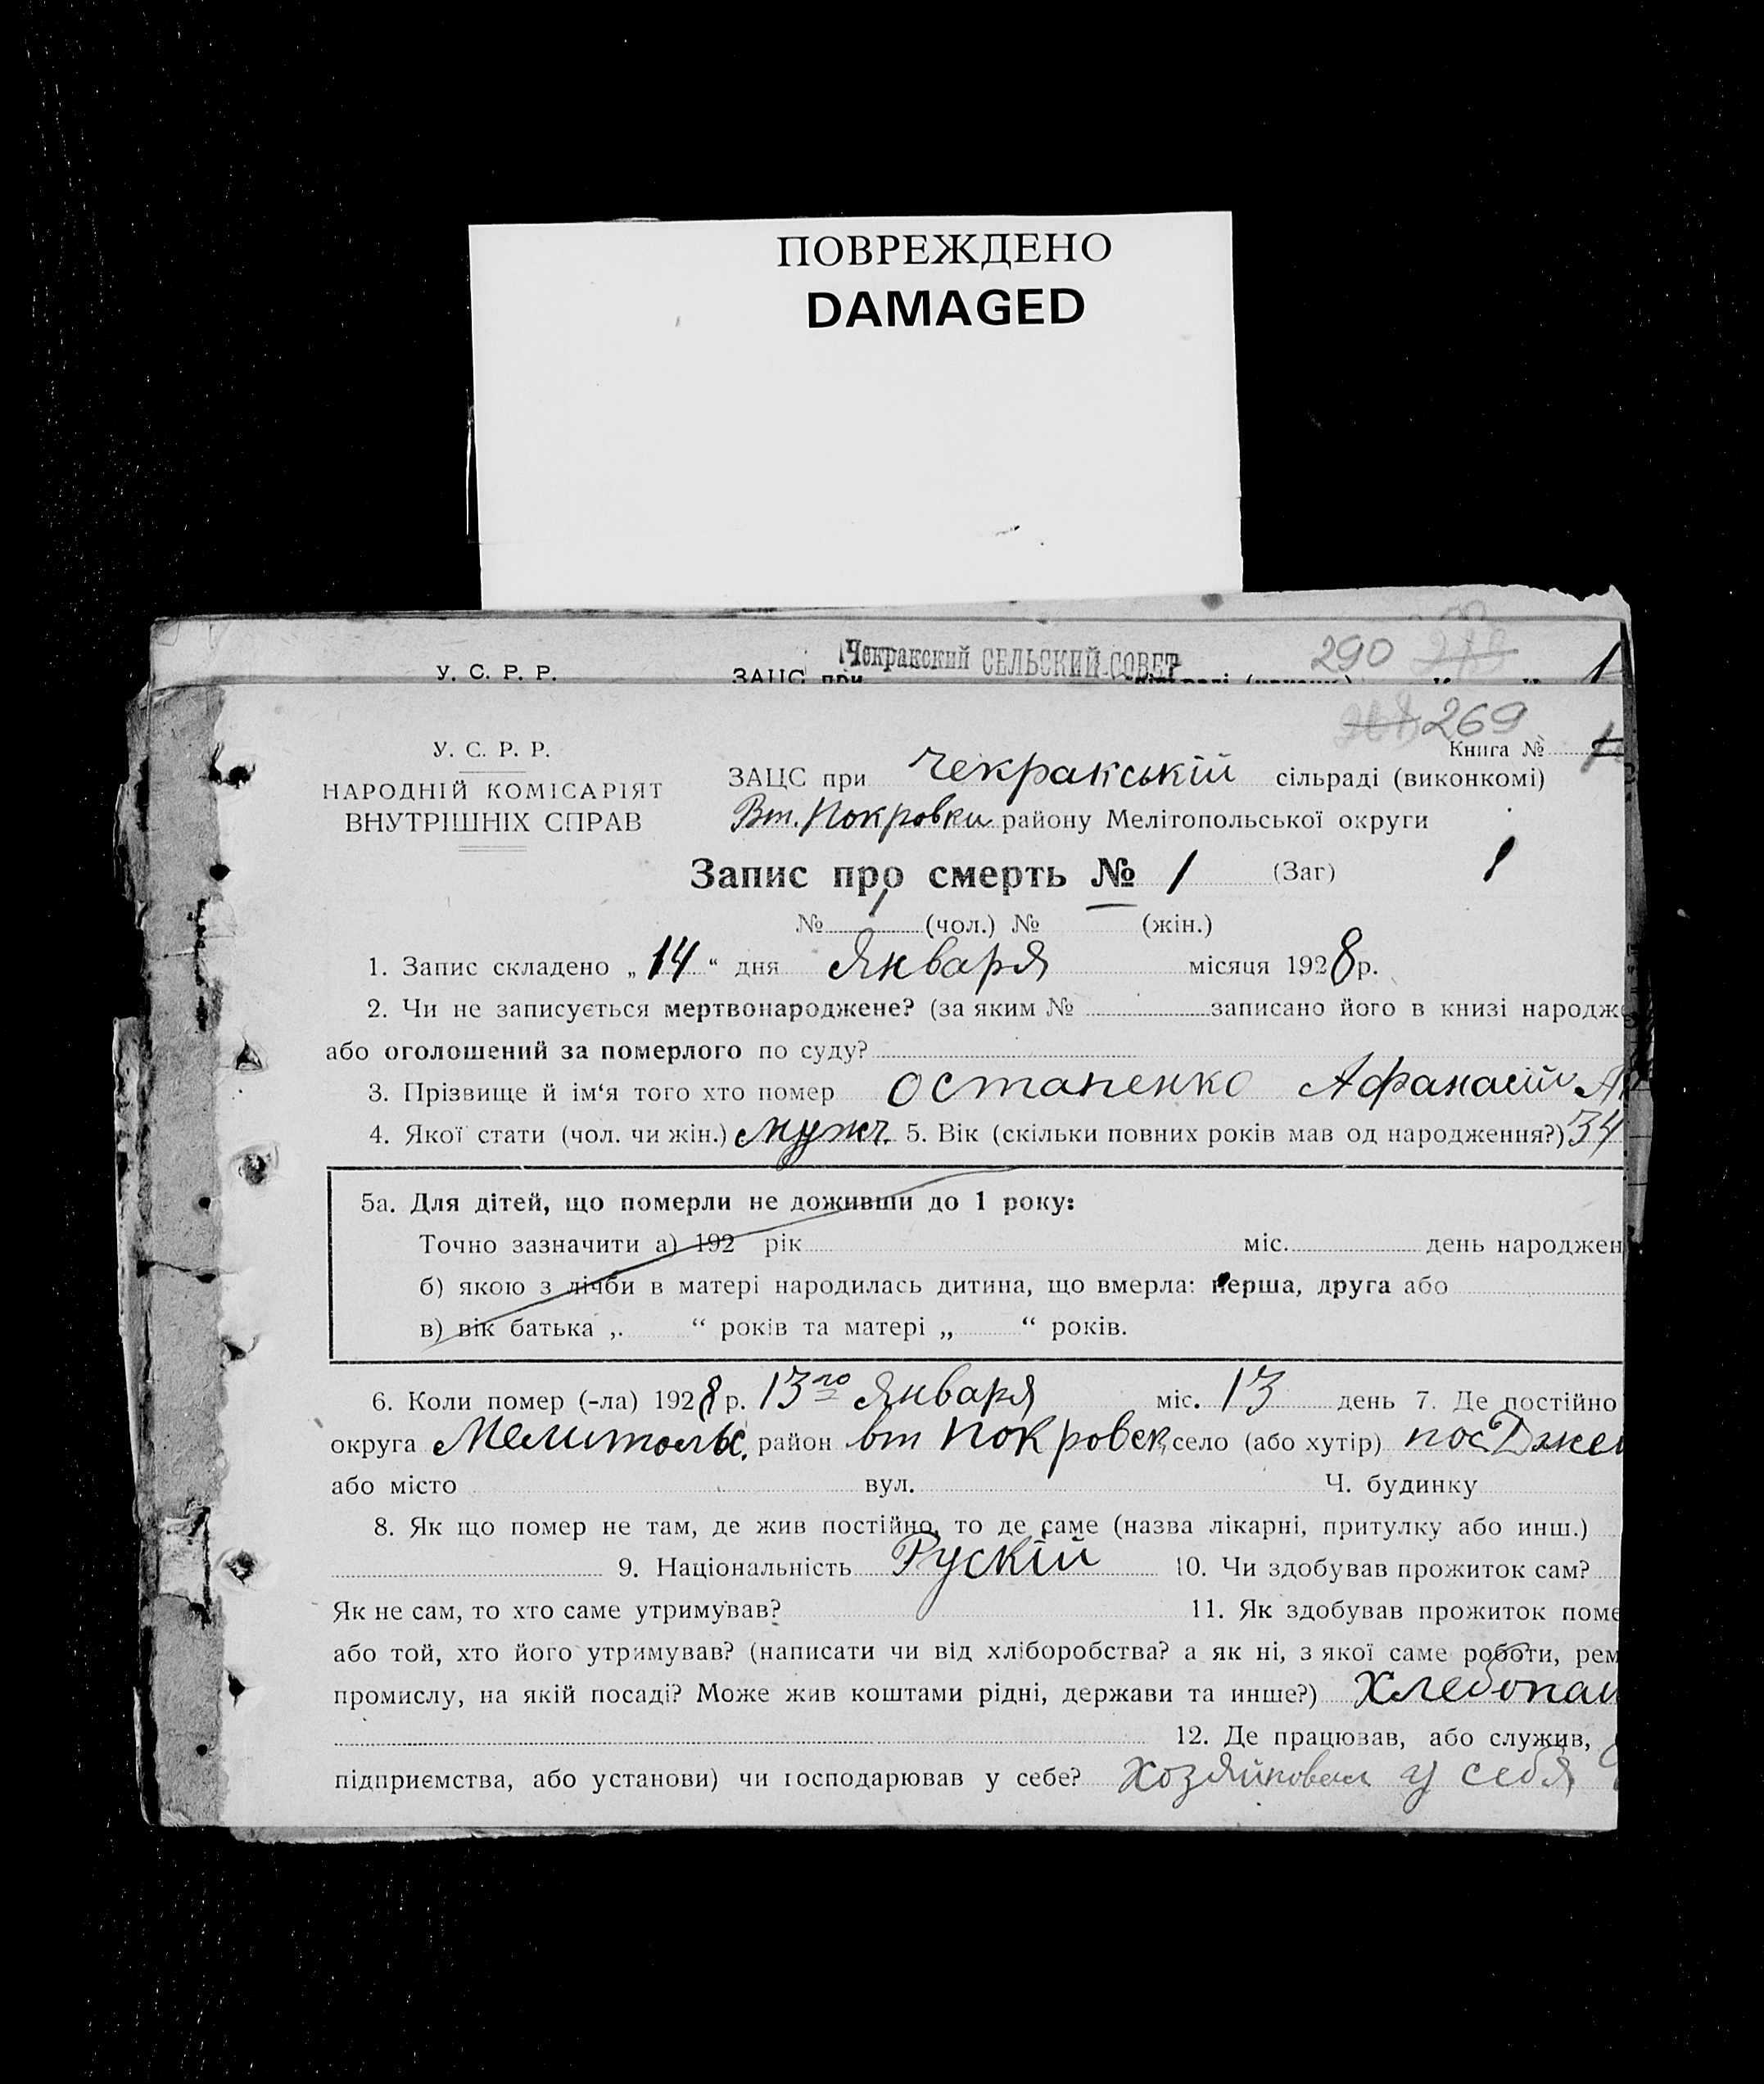 ПОВРЕЖДЕНО
DAMAGED
Чекракский СЕЛЬСКИЙ СОВЕТ
290
У. С. Р. Р.
ЗАЦС при
1
269
У. С. Р. Р.
Книга №
НАРОДНІЙ КОМІСАРІЯТ
ВНУТРІШНІХ СПРАВ
ЗАЦС при Чекракській сільраді (виконкомі)
Вт. Покровки району Мелітопольської округи
Запис про смерть № 1 (Заг) 1
№ 1 (чол.) № (жін.)
1. Запис складено „14“ дня Января місяця 1928р.
2. Чи не записується мертвонароджене? (за яким № записано його в книзі народже
або оголошений за померлого по суду?
3. Прізвище й ім‘я того хто помер Остапенко Афанасій
4. Якої стати (чол. чи жін.) мужч. 5. Вік (скільки повних років мав од народження?) 34
5а. Для дітей, що померли не доживши до 1 року:
Точно зазначити а) 192 рік міс. день народжен
б) якою з лічби в матері народилась дитина, що вмерла: перша, друга або
в) вік батька „ “ років та матері „ “ років.
6. Коли помер (-ла) 1928 р. 13го Января міс. 13 день 7. Де постійно
округа Мелитольс. район вт Покровск, село (або хутір) пос Джен
або місто вул. Ч. будинку
8. Як що помер не там, де жив постійно, то де саме (назва лікарні, притулку або инш.)
9. Національність Рускій 10. Чи здобував прожиток сам?
Як не сам, то хто саме утримував? 11. Як здобував прожиток поме
або той, хто його утримував? (написати чи від хліборобства? а як ні, з якої саме роботи, рем
промислу, на якій посаді? Може жив коштами рідні, держави та инше?) Хлебопаш
12. Де працював, або служив,
підприємства, або установи) чи господарював у себе? Хозяйновал у себя